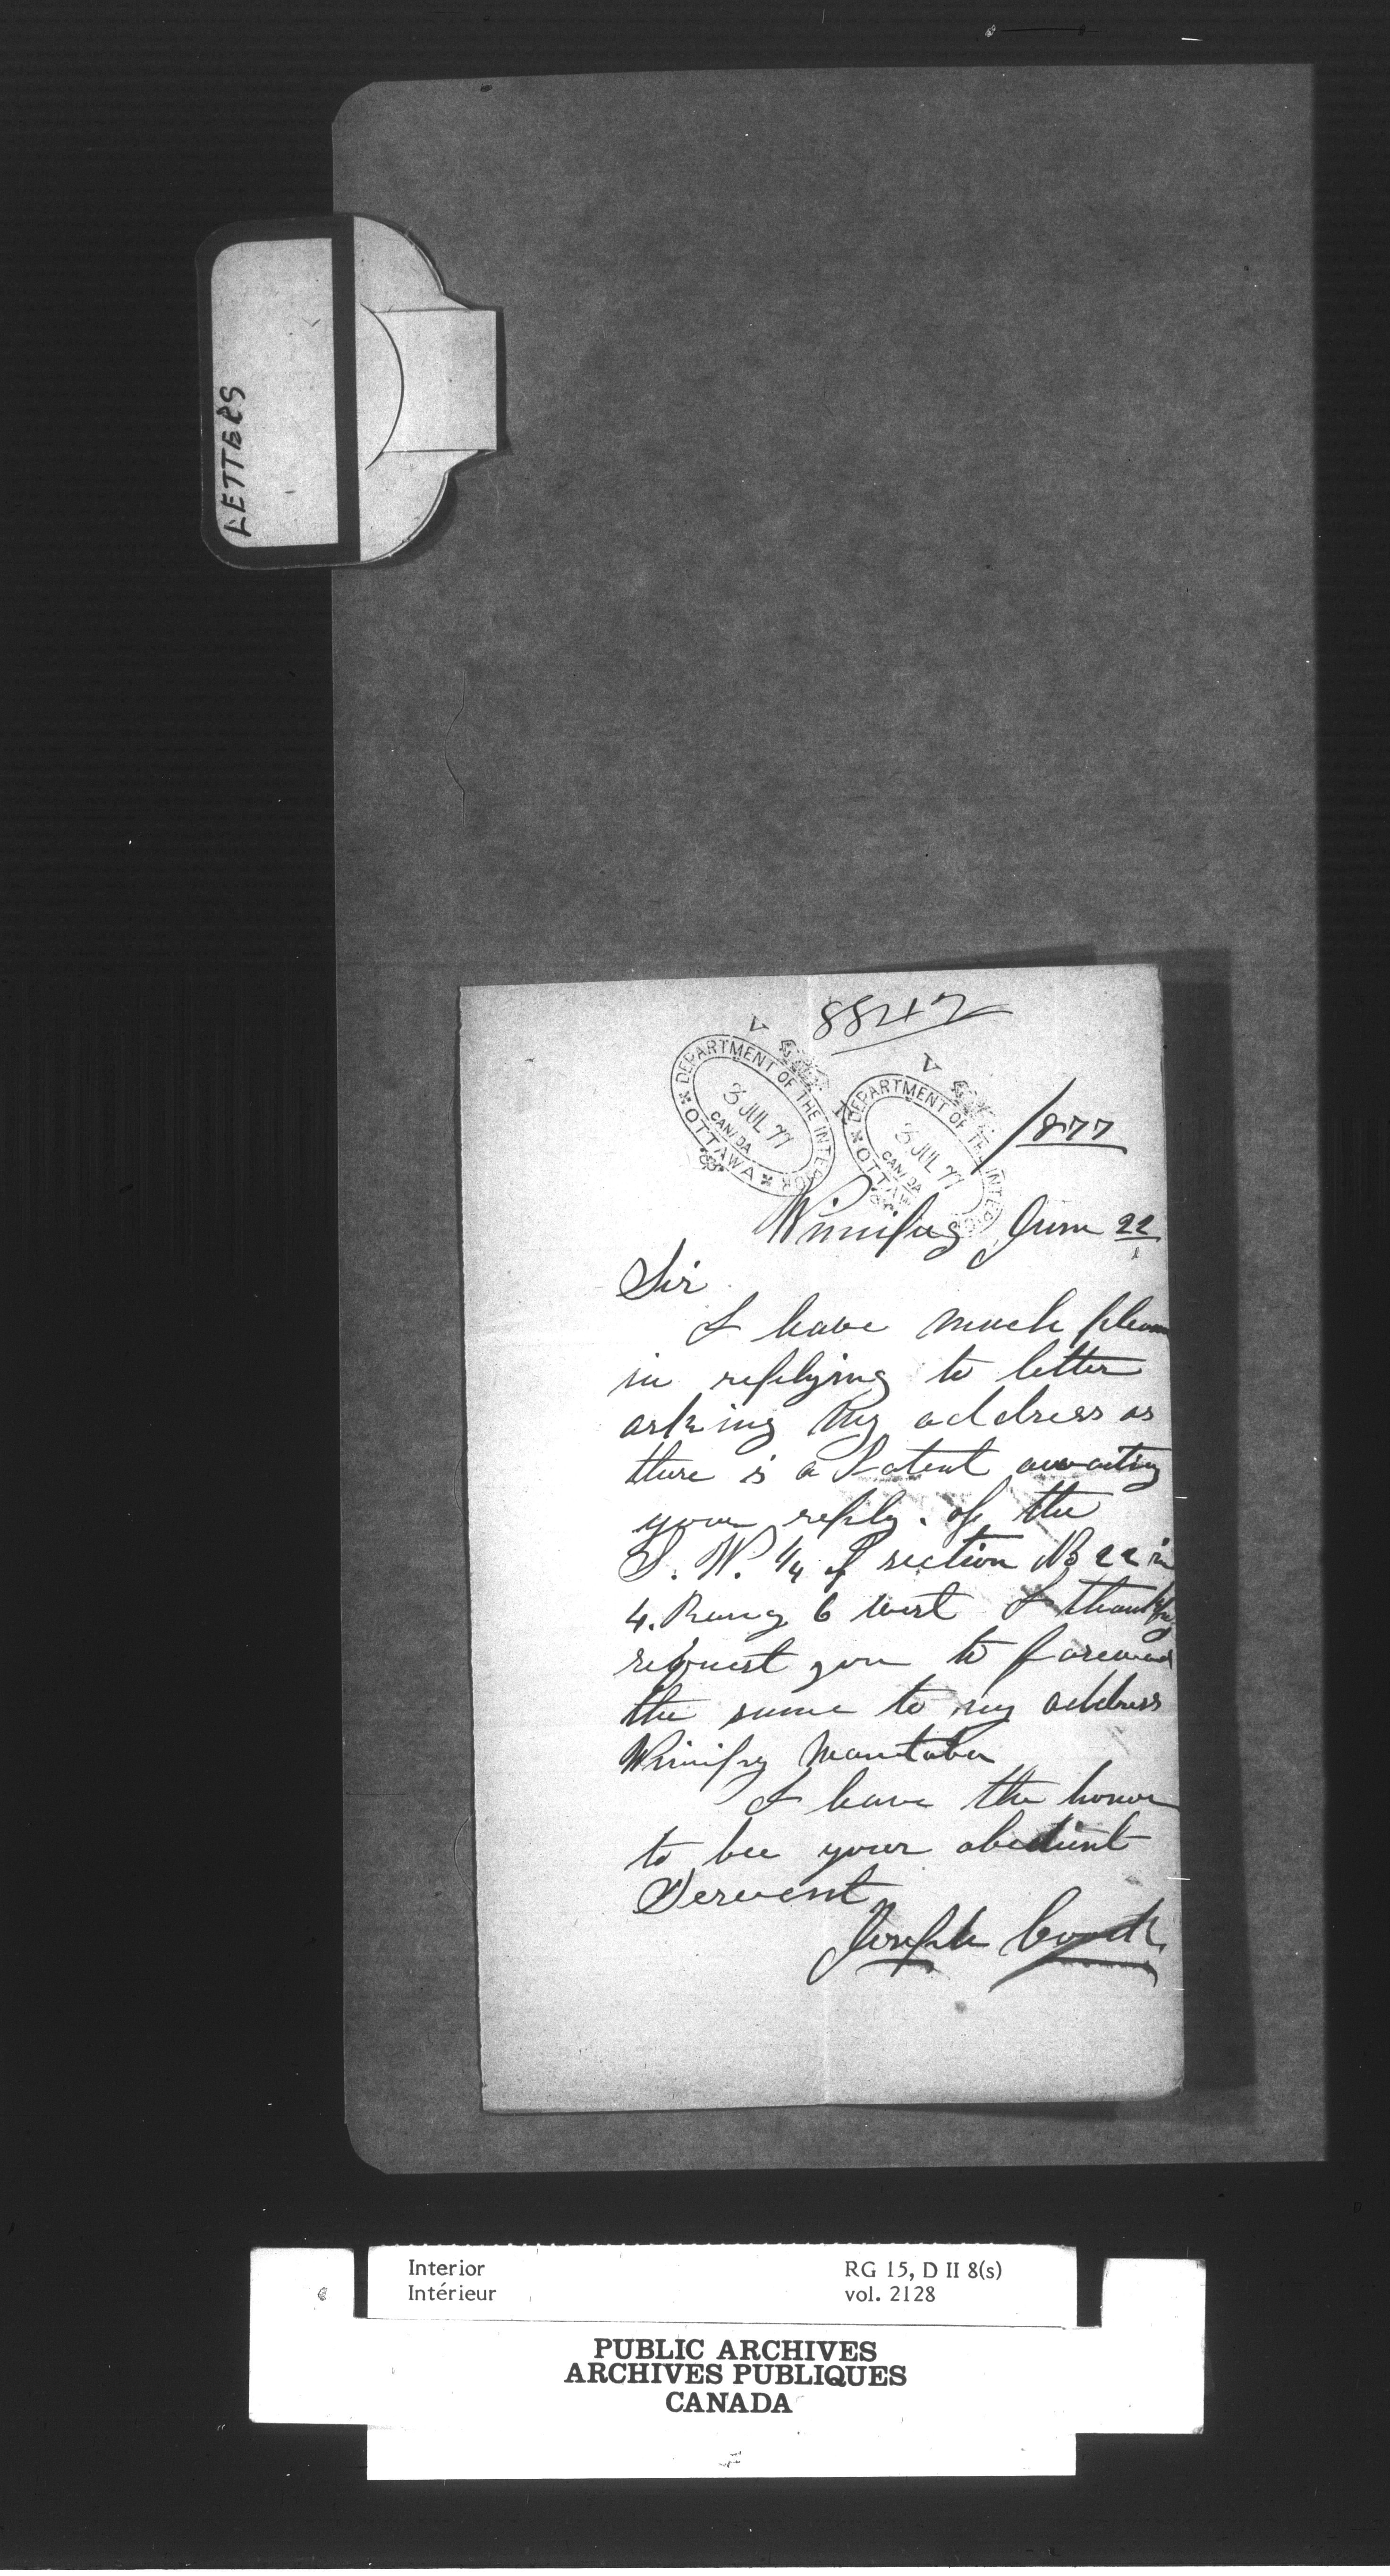 LETTERS
8842
DEPARTMENT OF THE INTERIOR
3 JUL 77
CANADA
OTTAWA
DEPARTMENT OF THE INTERIOR
3 JUL 77
CANADA
OTTAWA
/877
Winnipeg June 22
Sir
I have much
in replying to letter
asking my address as
there is a Patent awaiting
your reply. of the
S. W. 1/4 of section No 22 in
4. Rang 6 west I
request you to foreward
the same to my address
Winnipeg Manitoba
I have the honor
to bee your obedient
Servent
Joseph
Interior
Intérieur
RG 15, D II 8(s)
vol. 2128
PUBLIC ARCHIVES
ARCHIVES PUBLIQUES
CANADA